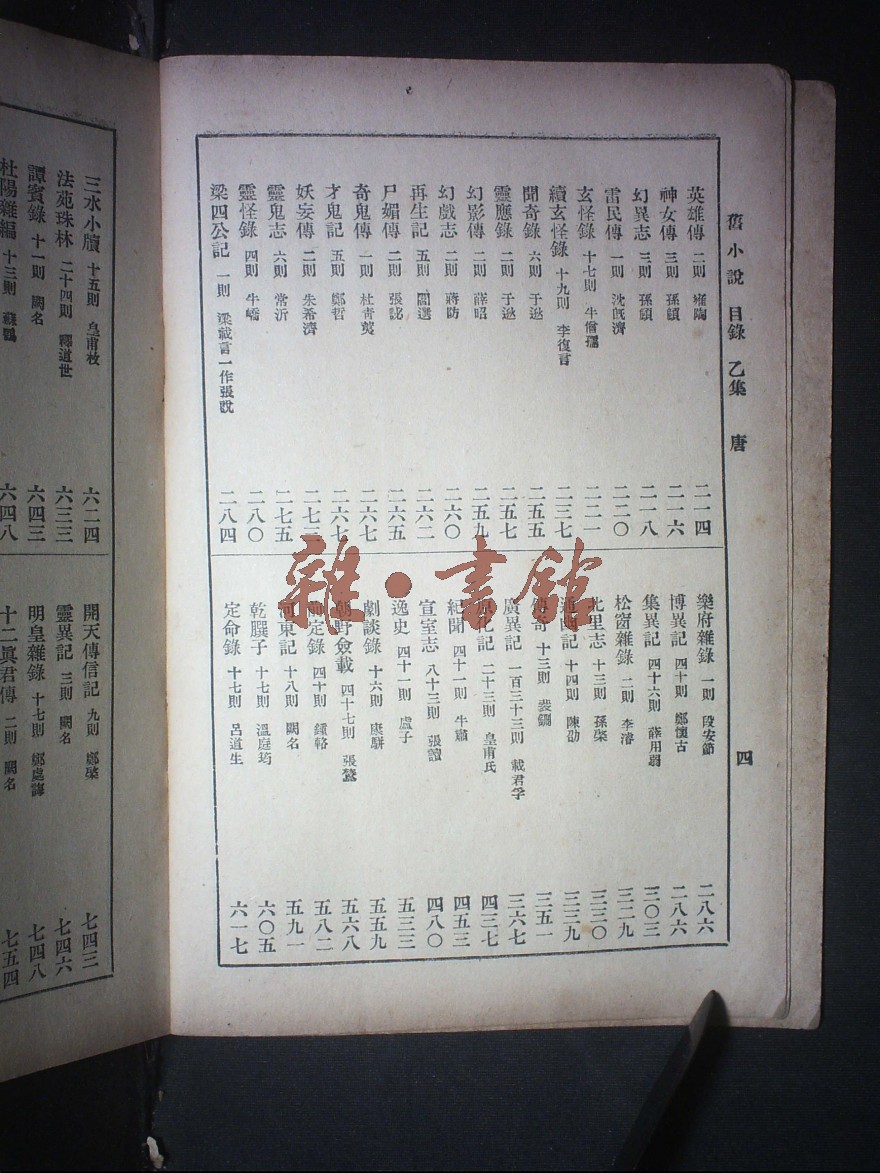 舊小說 目錄 乙集 唐
四
英雄傳 二則 雍陶 二一四
神女傳 三則 孫頠 二一六
幻異志 三則 孫頠 二一八
雷民傳 一則 沈既濟 二二〇
玄怪錄 十七則 牛僧孺 二二一
續玄怪錄 十九則 李復言 二三七
聞奇錄 六則 于逖 二五五
靈應錄 二則 于逖 二五七
幻影傳 二則 薛昭 二五九
幻戲志 二則 蔣防 二六〇
再生記 五則 閻選 二六二
尸媚傳 二則 張泌 二六五
奇鬼傳 一則 杜青荑 二六七
才鬼記 五則 鄭哲 二六七
妖妄傳 二則 朱希濟 二七三
靈鬼志 六則 常沂 二七五
靈怪錄 四則 牛嶠 二八〇
梁四公記 一則 梁載言一作張說 二八四
樂府雜錄 一則 段安節 二八六
博異記 四十則 鄭懷古 二八六
集異記 四十六則 薛用弱 三〇三
松窗雜錄 二則 李濬 三二九
北里志 十三則 孫棨 三三〇
通幽記 十四則 陳劭 三三九
傳奇 十三則 裴鉶 三五一
廣異記 一百三十三則 戴君孚 三六七
原化記 二十三則 皇甫氏 四三七
紀聞 四十一則 牛肅 四五三
宣室志 八十三則 張讀 四八〇
逸史 四十一則 盧子 五三三
劇談錄 十六則 康駢 五五九
朝野僉載 四十七則 張鷟 五六八
前定錄 四十則 鍾輅 五八二
河東記 十八則 闕名 五九一
乾𦠆子 十七則 溫庭筠 六〇五
定命錄 十七則 呂道生 六一七
三水小牘 十五則 皇甫枚 六二四
法苑珠林 二十四則 釋道世 六三三
譚賓錄 十一則 闕名 六四三
杜陽雜編 十三則 蘇鶚 六四八
開天傳信記 九則 鄭棨 七四三
靈異記 三則 闕名 七四六
明皇雜錄 十七則 鄭處誨 七四八
十二眞君傳 二則 闕名 七五四
雜·書館